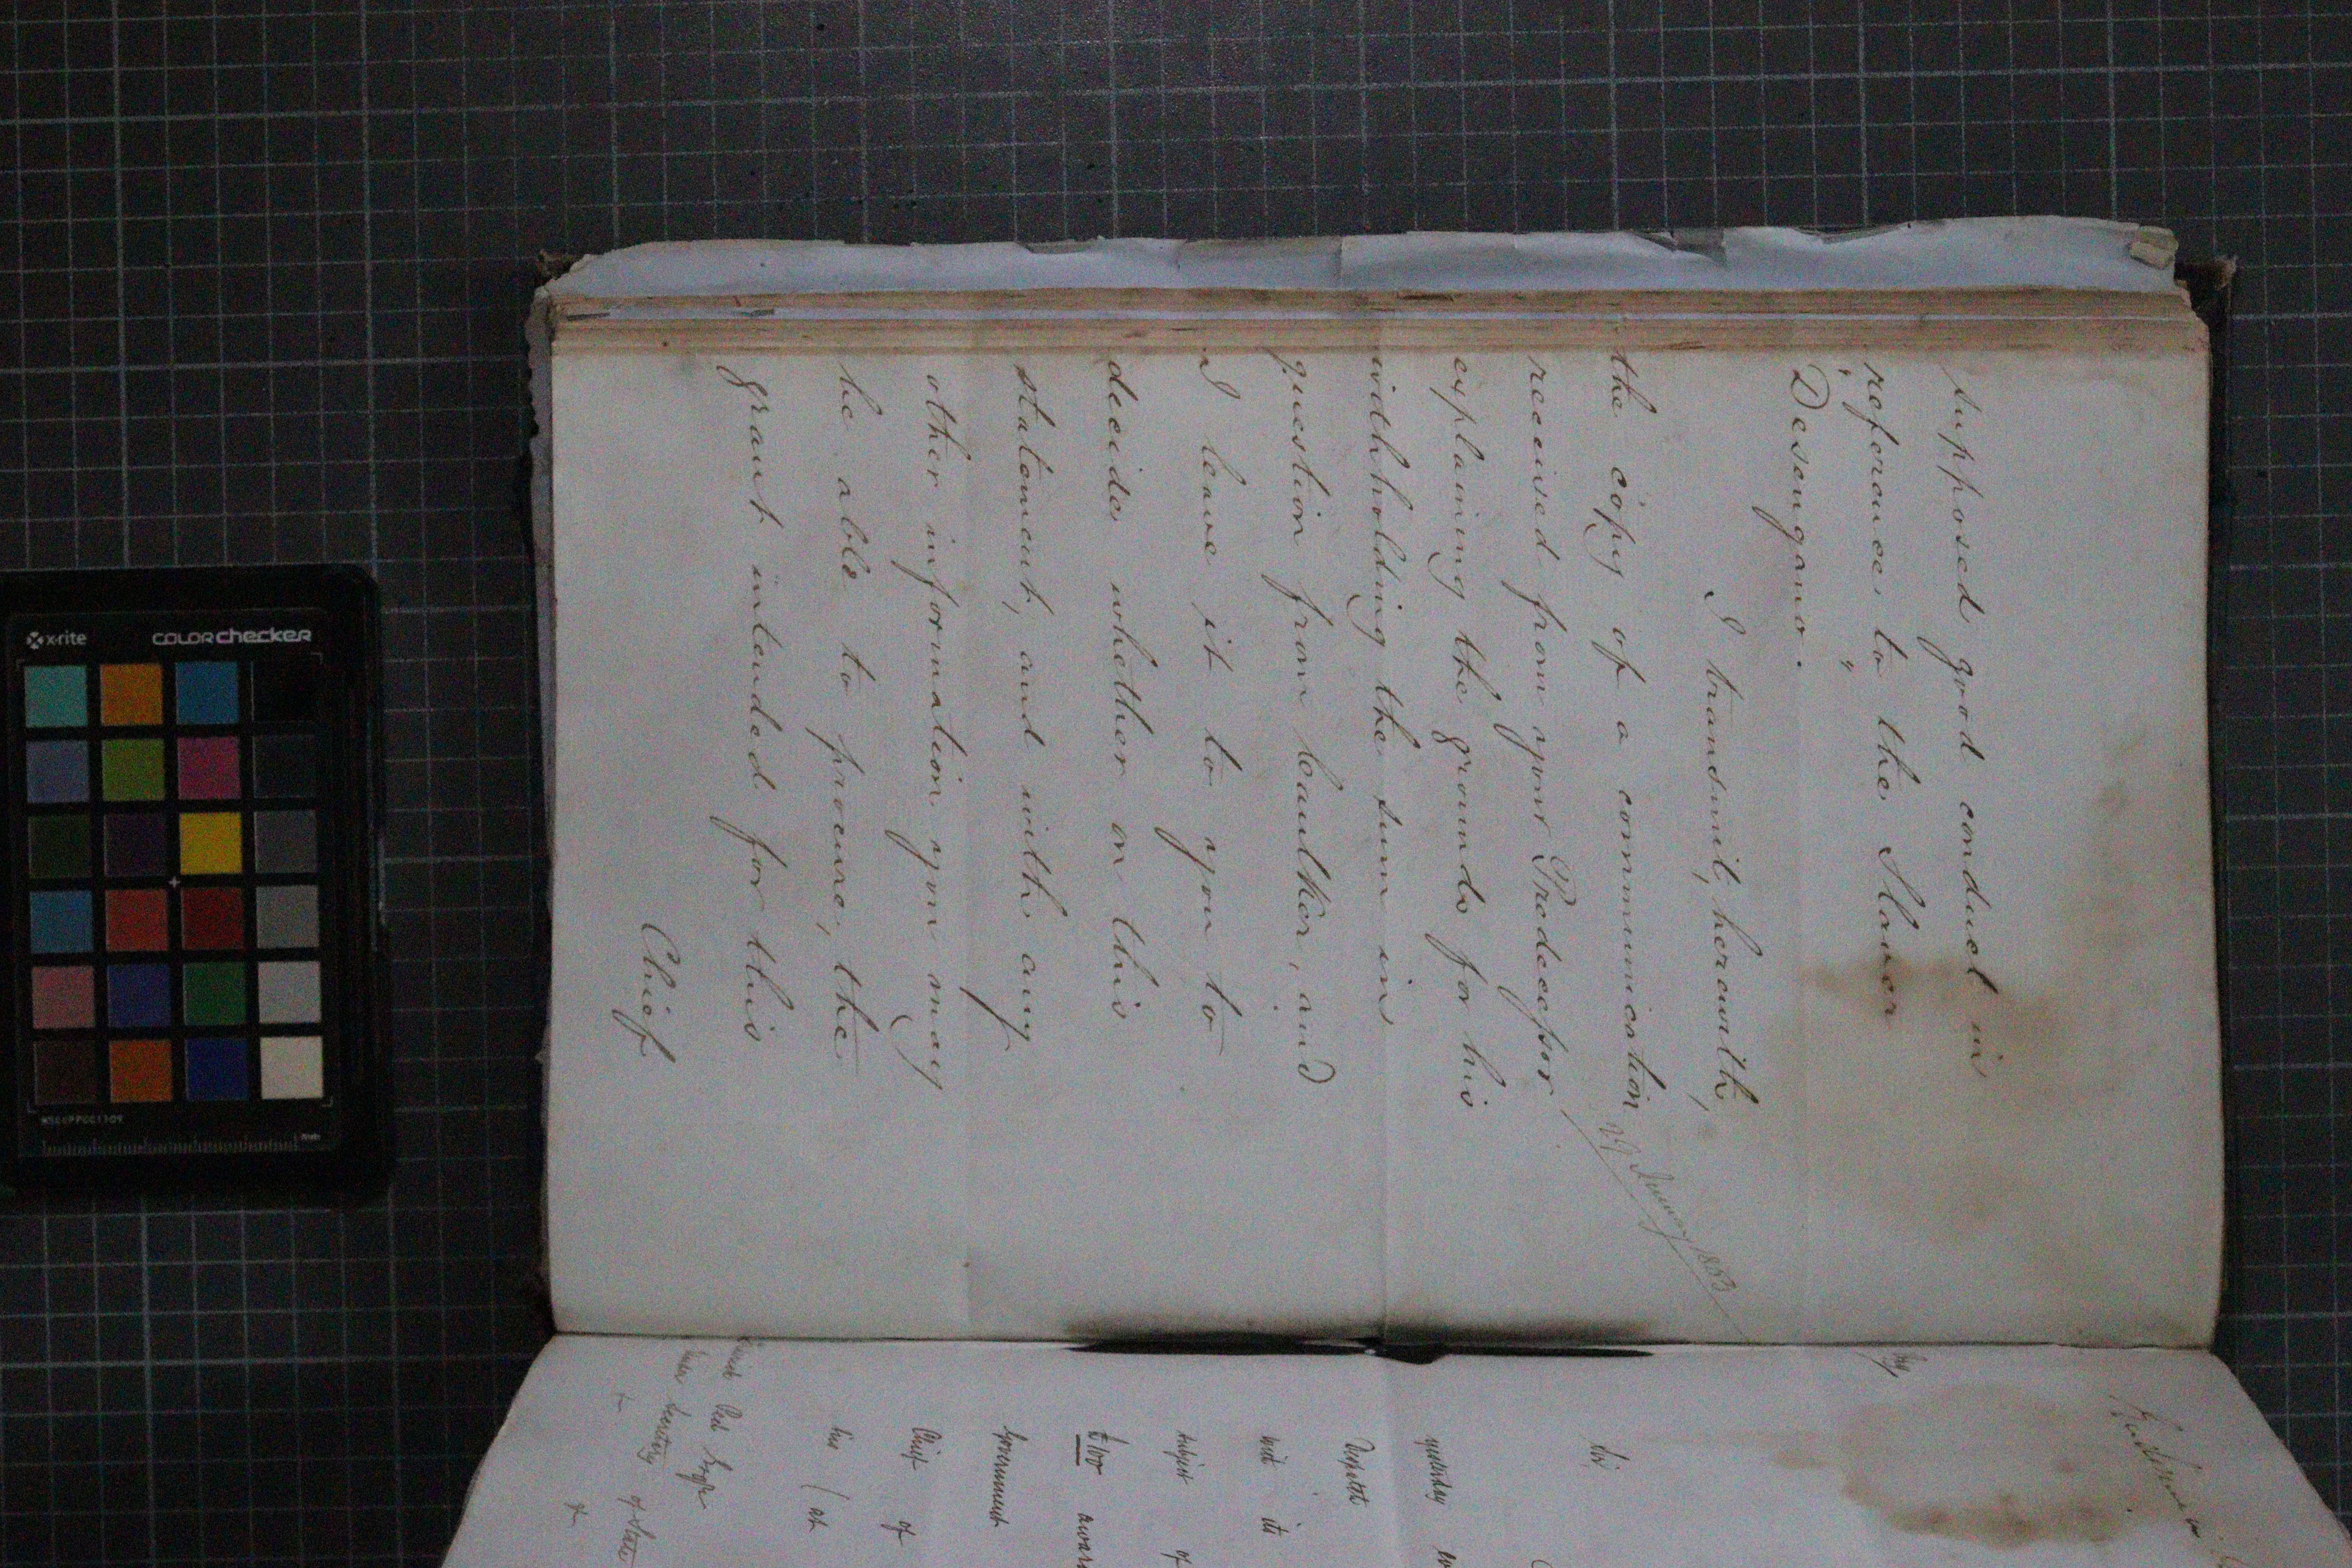 supposed good conduct in
reference to the Slaver
"Desengano."
I transmit, herewith,
the copy of a communication
received from your Predecessor
explaining the grounds for his
withholding the sum in
question from Caulker, and
I leave it to you to
decide whether on this
statement, and with any
other information you may
be able to procure, the
grant intended for this
Chief
January 1853
Sir
yesterday
Despatch
with its
subject of
£100 award
Government
Chief of
his (at
of State
x-rite
colorchecker